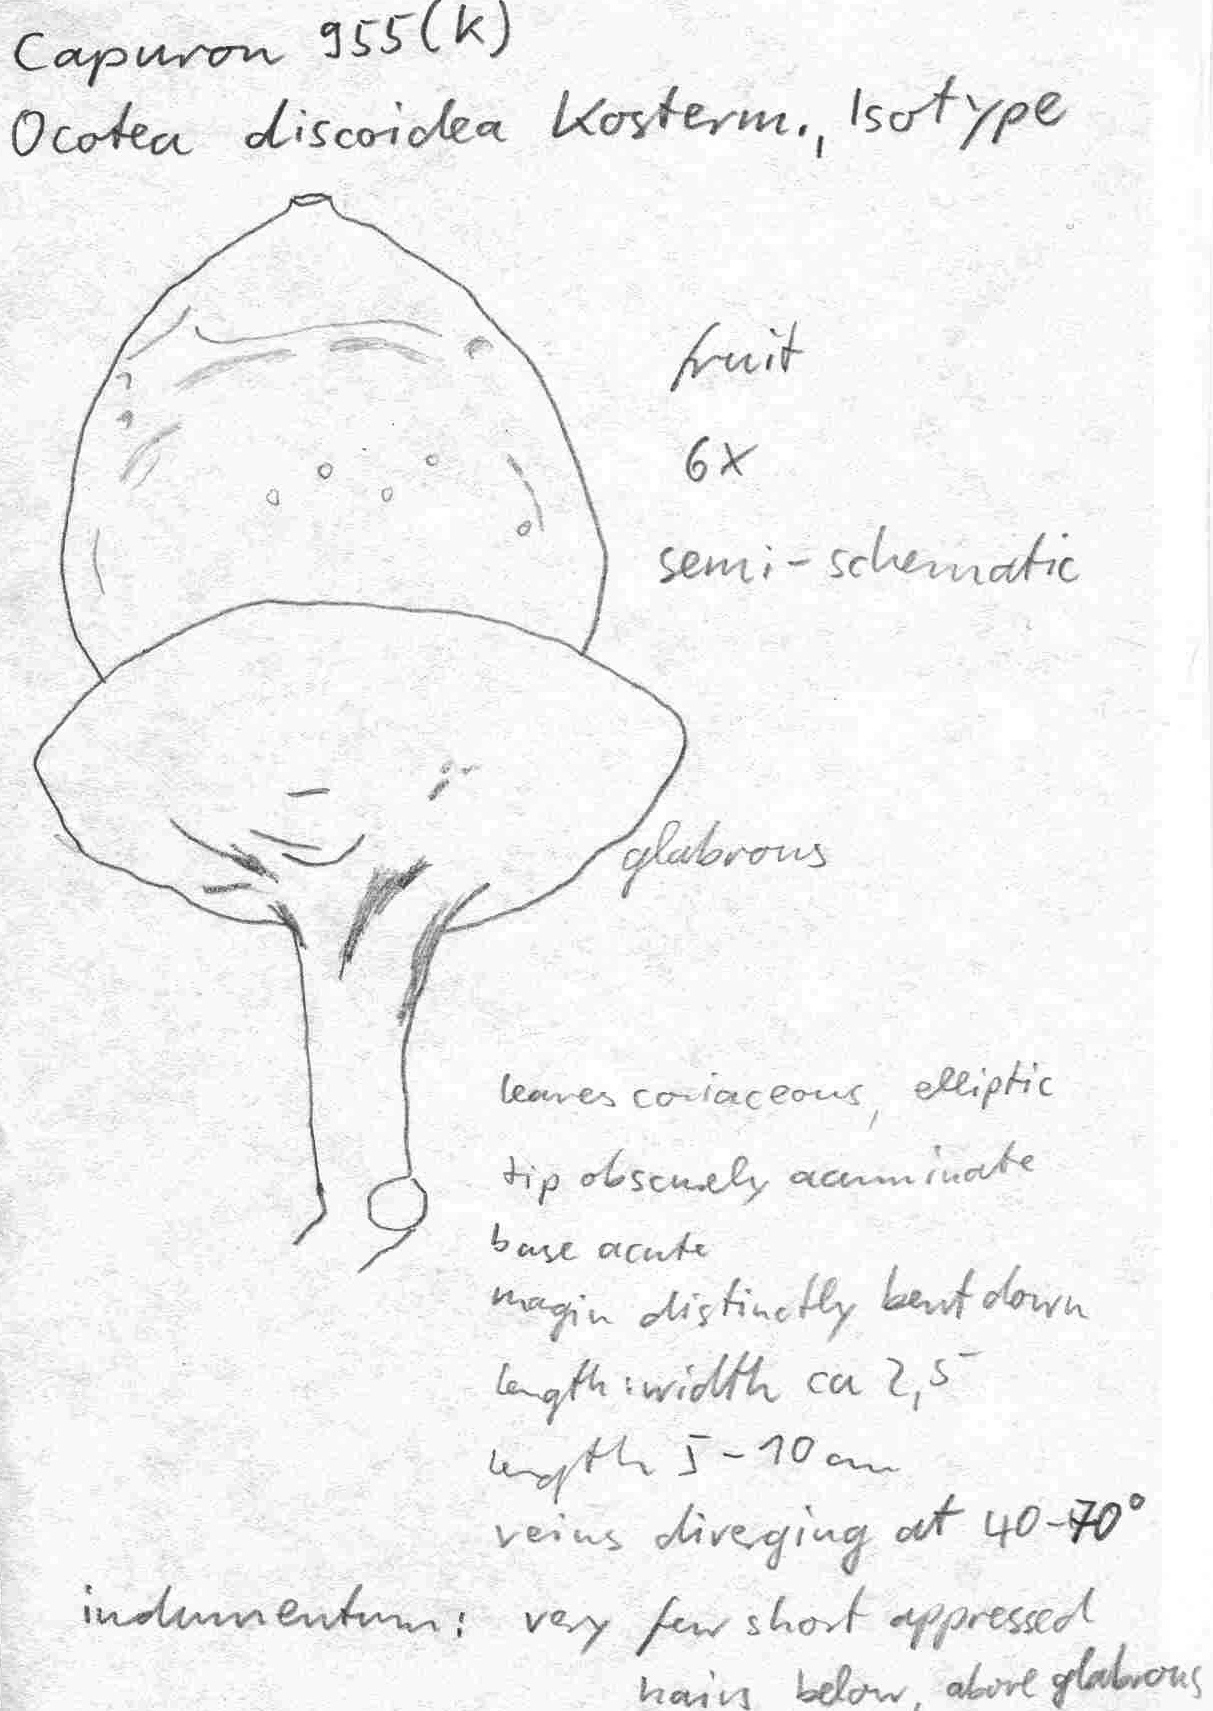 Capuron 955(K)
Ocotea discoidea Kosterm., Isotype
fruit
6x
semi-schematic
glabrous
leaves coriaceous, elliptic
tip obscurely acuminate
base acute
magin distinctly bent down
length:width ca 2,5
length 5-10 cm
veins diverging at 40-70°
indumentum: very few short appressed
hairs below, above glabrous